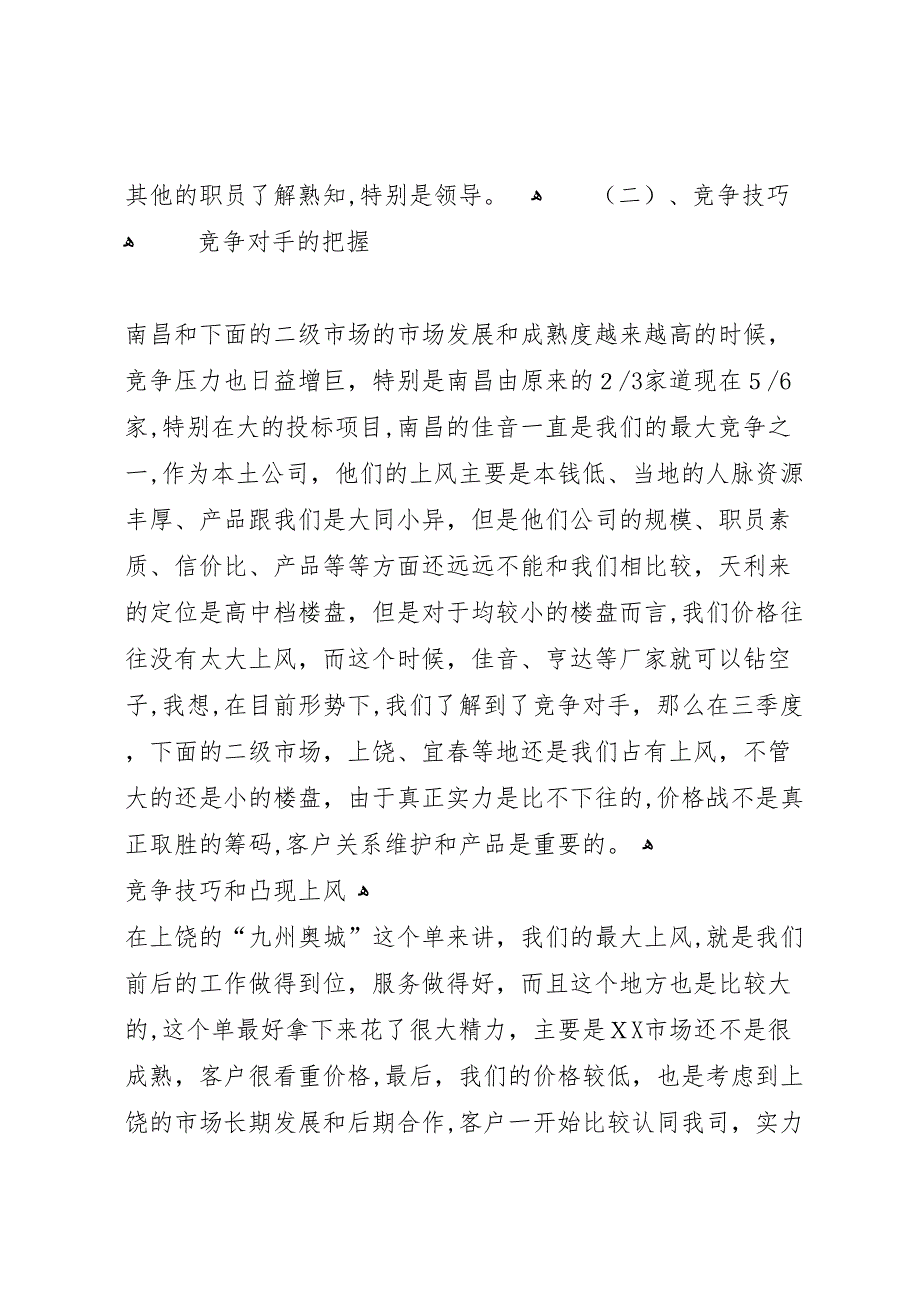 其他的职员了解熟知,特别是领导。 ﻫ （二）、竞争技巧
ﻫ 竞争对手的把握
南昌和下面的二级市场的市场发展和成熟度越来越高的时候，
竞争压力也日益增巨，特别是南昌由原来的２/3家道现在５/6
家,特别在大的投标项目,南昌的佳音一直是我们的最大竞争之
一,作为本土公司，他们的上风主要是本钱低、当地的人脉资源
丰厚、产品跟我们是大同小异，但是他们公司的规模、职员素
质、信价比、产品等等方面还远远不能和我们相比较，天利来
的定位是高中档楼盘，但是对于均较小的楼盘而言,我们价格往
往没有太大上风，而这个时候，佳音、亨达等厂家就可以钻空
子,我想,在目前形势下,我们了解到了竞争对手，那么在三季度
，下面的二级市场，上饶、宜春等地还是我们占有上风，不管
大的还是小的楼盘，由于真正实力是比不下往的,价格战不是真
正取胜的筹码,客户关系维护和产品是重要的。 ﻫ
竞争技巧和凸现上风 ﻫ
在上饶的“九州奥城”这个单来讲，我们的最大上风,就是我们
前后的工作做得到位，服务做得好，而且这个地方也是比较大
的,这个单最好拿下来花了很大精力，主要是ＸX市场还不是很
成熟，客户很看重价格,最后，我们的价格较低，也是考虑到上
饶的市场长期发展和后期合作,客户一开始比较认同我司，实力